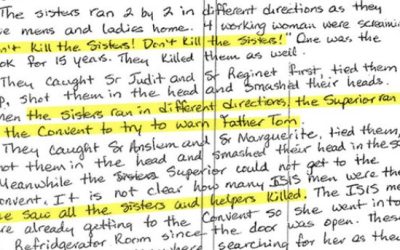 The sisters ran 2 by 2 in different directions as they
ve mens and ladies home. 4 working woman were screamin
n't Kill the Sisters! Don't Kill the Sisters!" One was the
ok for 15 years. They Killed them as well.
They caught Sr Judit and Sr Reginet first, tied them
p, shot them in the head and smashed their heads.
hen the sisters ran in different directions, the Superior ran
the Convent to try to warn Father Tom.
They caught Sr Anslum and Sr Marguerite, tied them,
hot them in the head and smashed their head in the sa
Meanwhile the Superior could not get to the
onvent, It is not clear how many ISIS men were the
e saw all the sisters and helpers Killed. The ISIS me
ere already getting to the Convent so she went into
Refridgerator Room since the door was open. These
searching for her as the